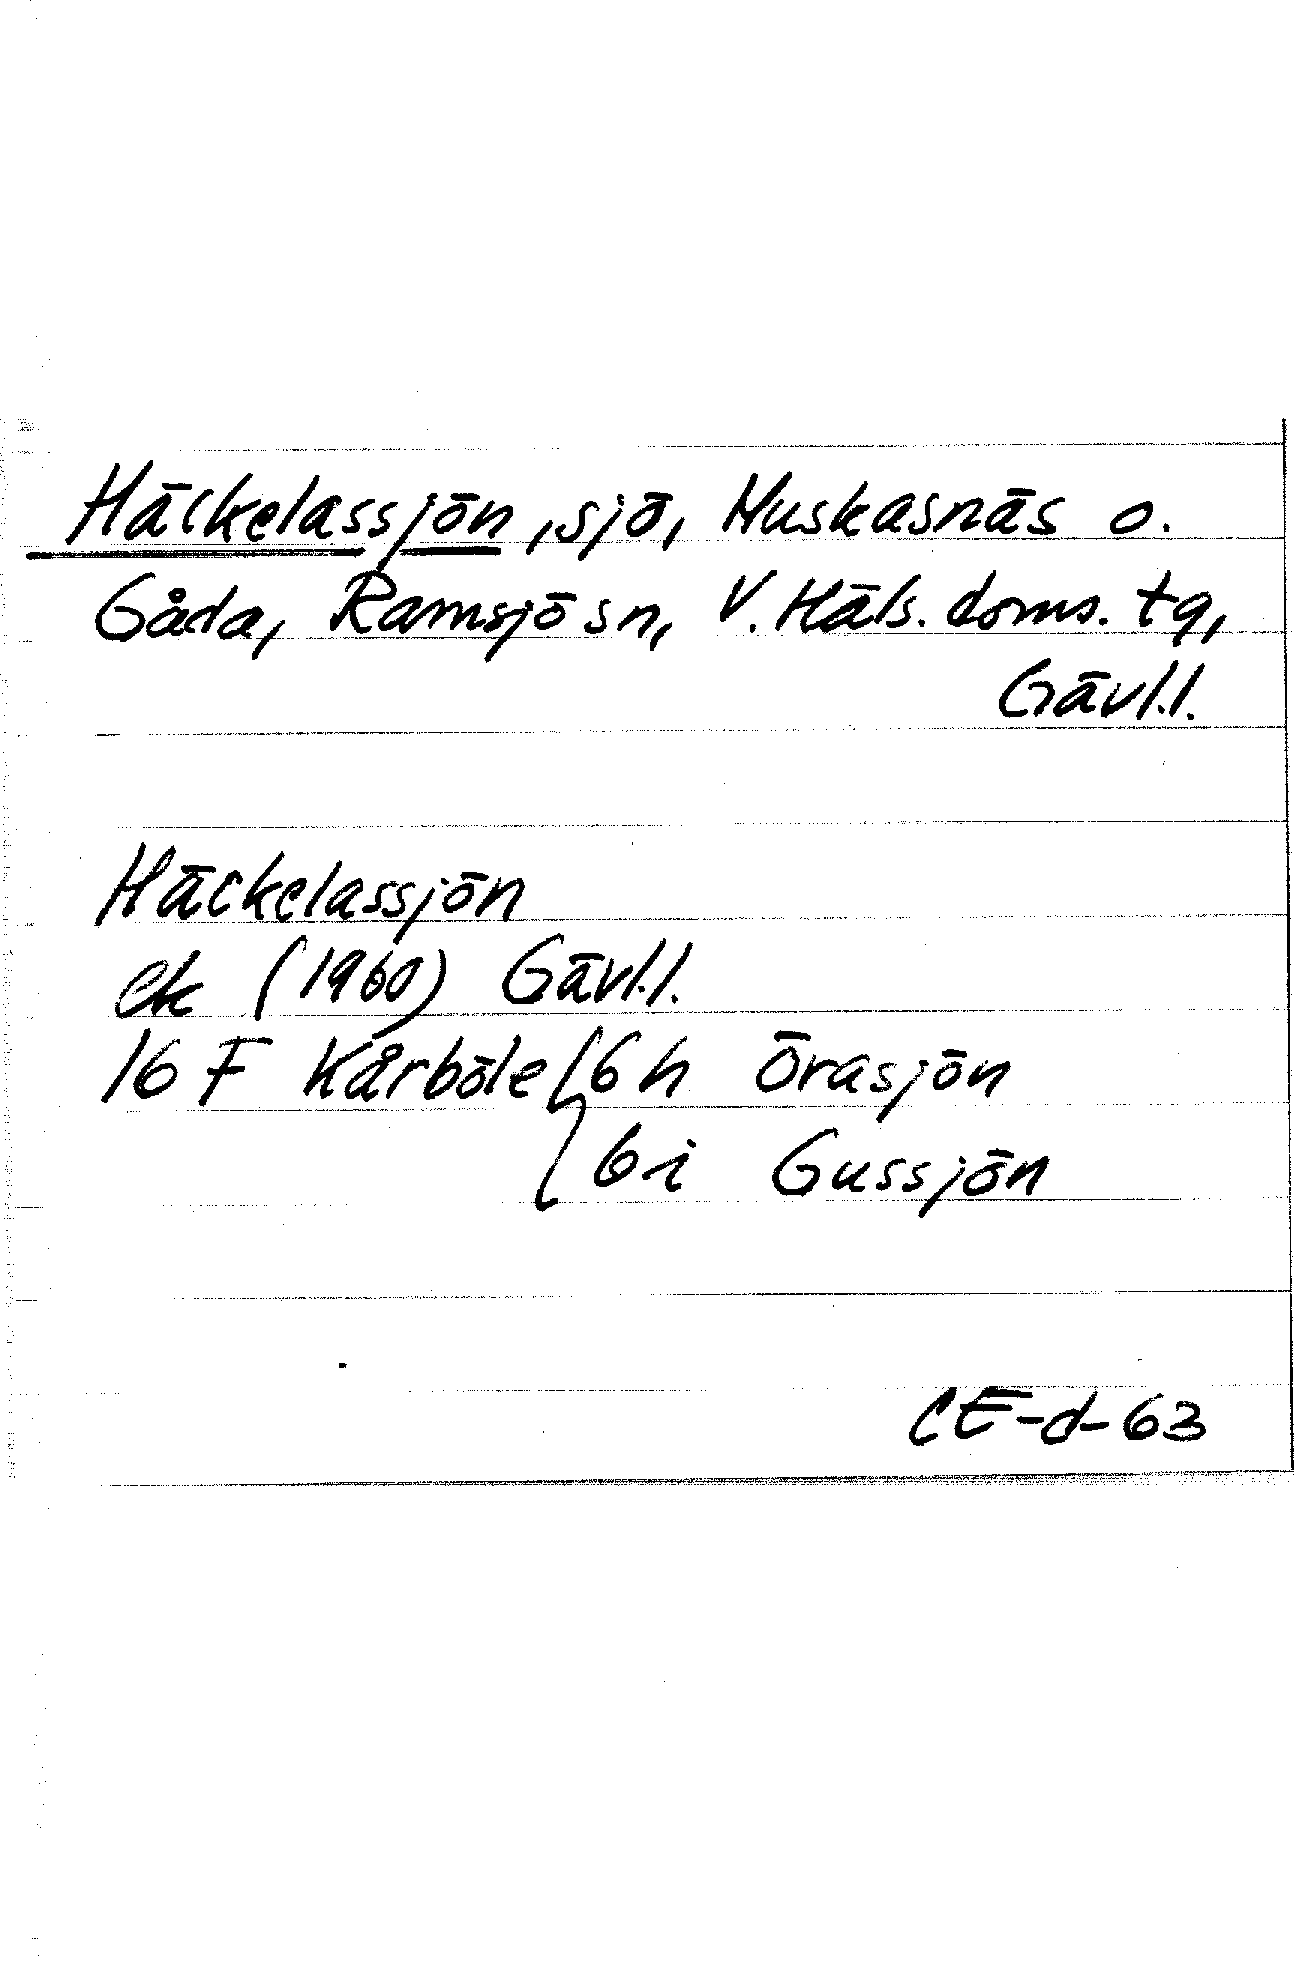 Häckelassjön, sjö, Muskasnäs o.
Gåda, Ramsjö sn, V. Häls. doms. tg,
Gävl.l.
Häckelassjön
ek (1960) Gävl.l.
16 F Kårböle { 6 h Örasjön
6 i Gussjön
CE-d-63